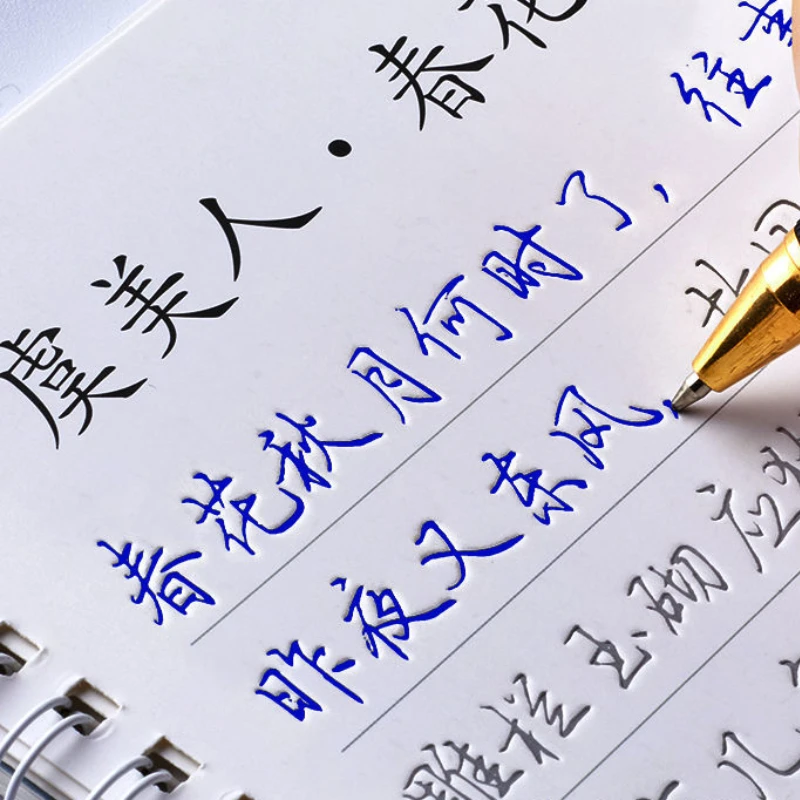 虞美人·春花
春花秋月何时了，往事
昨夜又东风，故国
雕栏玉砌应犹
几